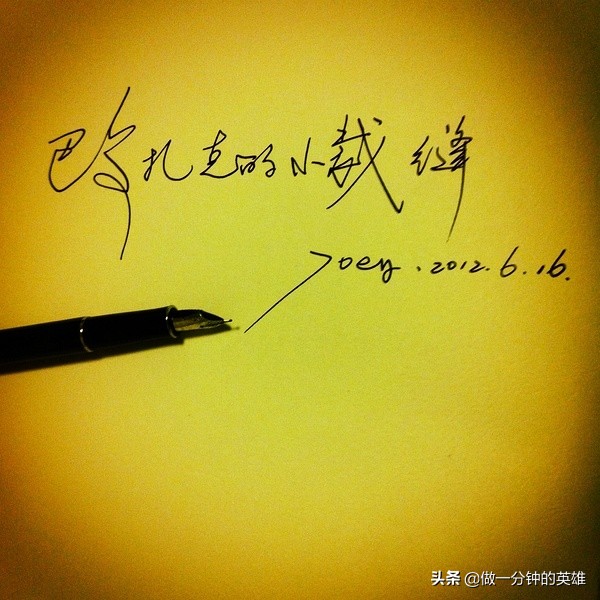 巴尔扎克的小裁缝
Joey. 2012. 6. 16.
头条 @做一分钟的英雄